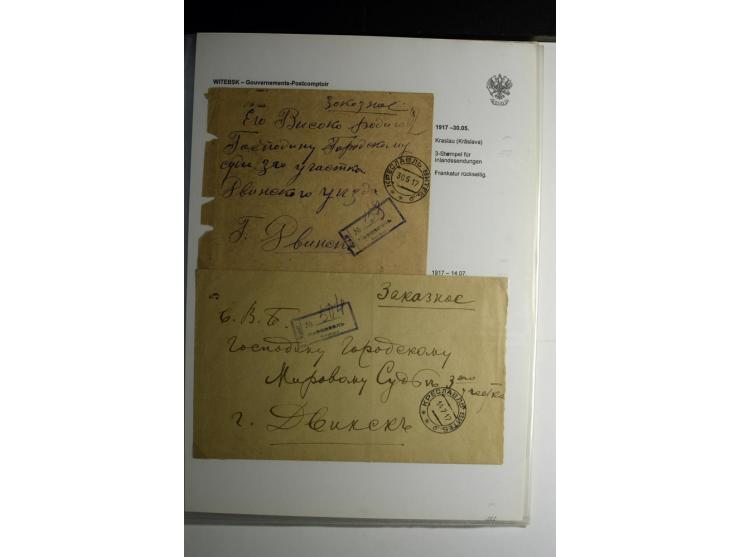 WITEBSK – Gouvernements-Postcomptoir
Заказное
Его Высоко родию
Господину Городскому
судьи 3го участка
Двинского уезда
Г. Двинск
КРЕСЛАВЛЬ ВИТЕБ.
30.5.17
№
1917 –30.05.
Kraslau (Krāslava)
3-Stempel für
Inlandssendungen
Frankatur rückseitig.
1917 – 14.07.
Заказное
№ 504
Креславль
Е. В. Б.
Господину Городскому
Мировому Судьѣ 3го
участка
г. Двинскъ
КРЕСЛАВЛЬ ВИТЕБ.
14.7.17